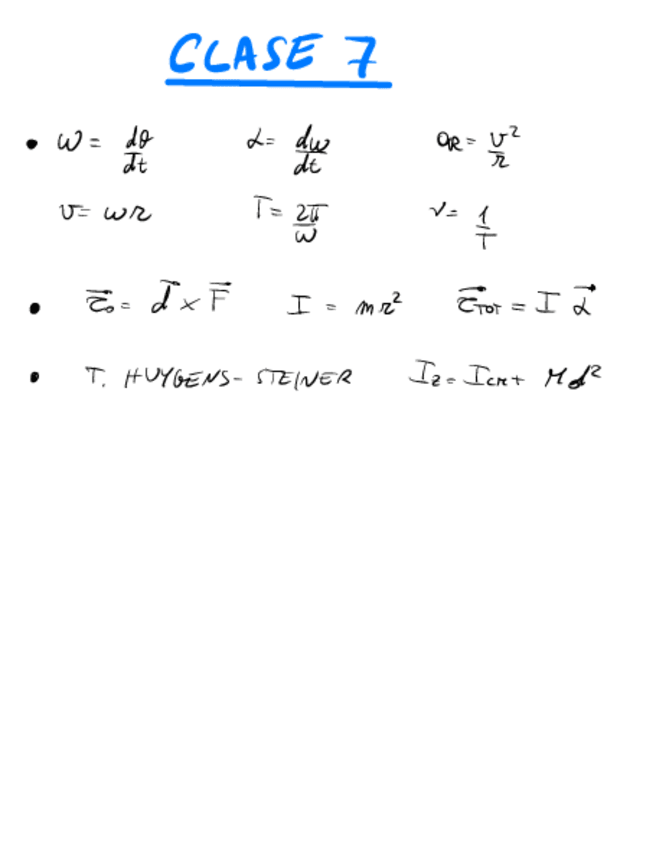 CLASE 7
• ω = dθ/dt   α = dω/dt   a_R = v²/r
v = ωr   T = 2π/ω   ν = 1/T
• τ⃗₀ = d⃗ × F⃗   I = mr²   τ⃗_TOT = I α⃗
• T. HUYGENS-STEINER   I_z = I_CM + Md²